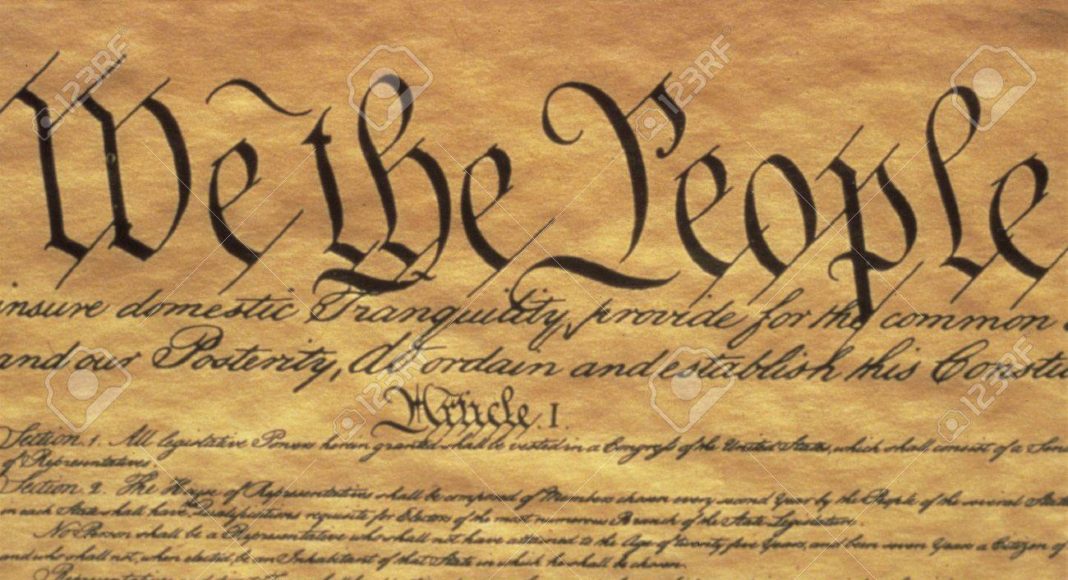 We the People
insure domestic Tranquility, provide for the common
and our Posterity, do ordain and establish this Constit
Article. I.
Section. 1. All legislative Powers herein granted shall be vested in a Congress of the United States, which shall consist of a Sen
of Representatives.
Section. 2. The House of Representatives shall be composed of Members chosen every second Year by the People of the several Stat
in each State shall have the Qualifications requisite for Electors of the most numerous Branch of the State Legislature.
No Person shall be a Representative who shall not have attained to the Age of twenty five Years, and been seven Years a Citizen of
and who shall not, when elected, be an Inhabitant of that State in which he shall be chosen.
Representatives and direct
123RF
123RF
123RF
123RF
123RF
123RF